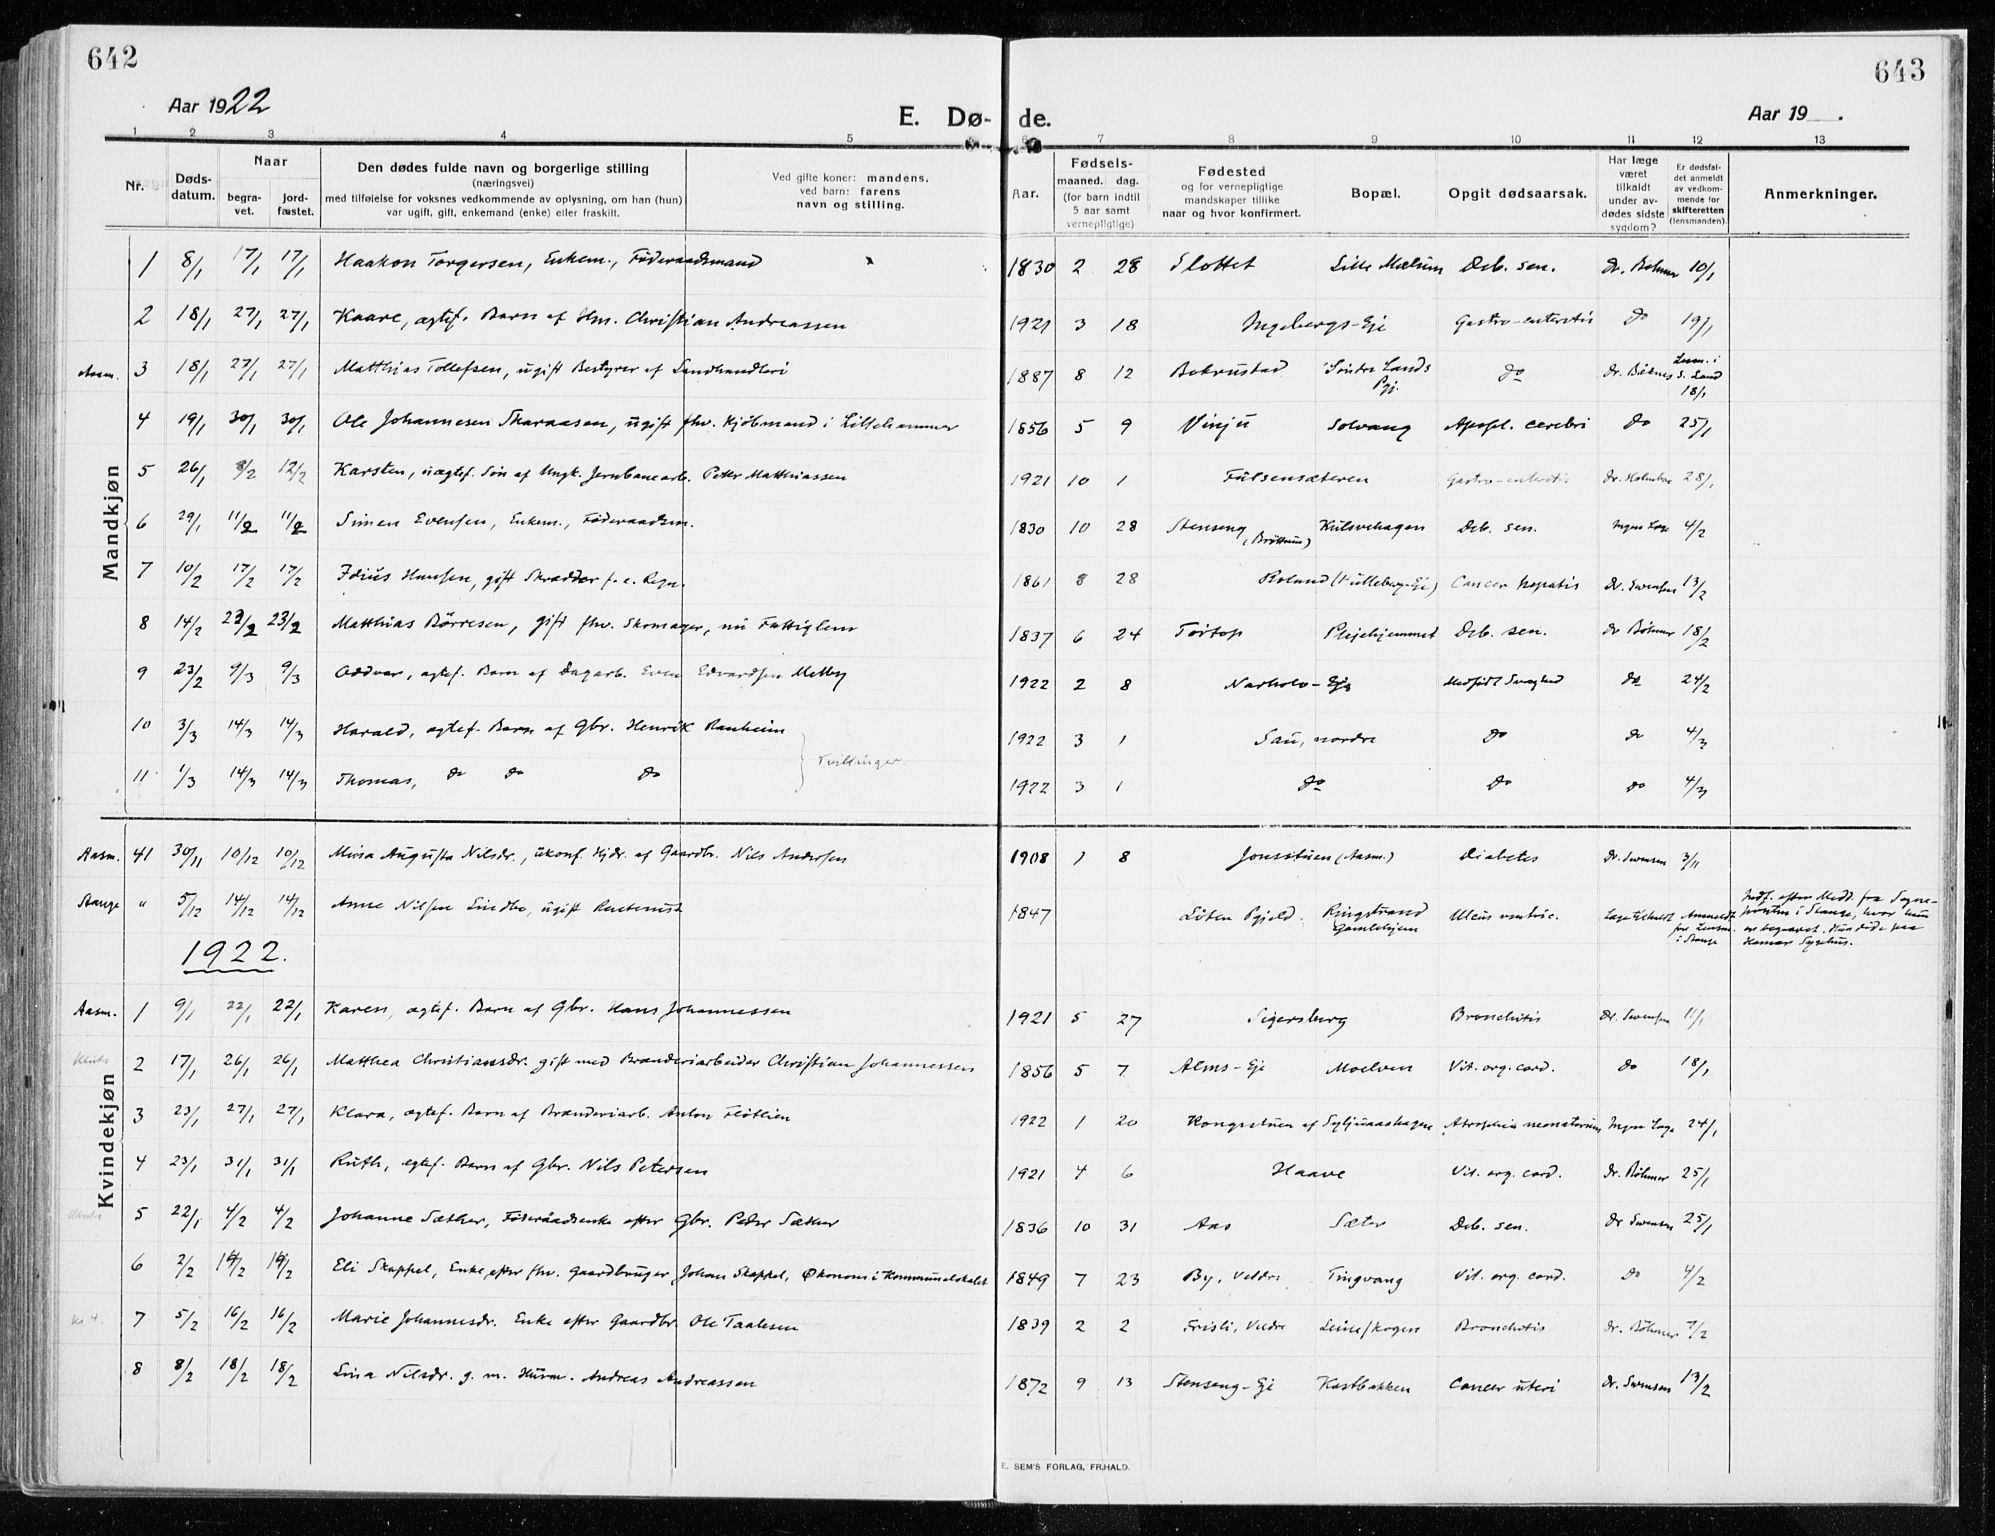 642
643
Aar 1922
E. Dø- de.
Aar 19 .
1 2 3 4 5 6 7 8 9 10 11 12 13
Nr.
Døds-
datum.
Naar
begra-
vet.
jord-
fæstet.
Den dødes fulde navn og borgerlige stilling
(næringsvei)
med tilføielse for voksnes vedkommende av oplysning, om han (hun)
var ugift, gift, enkemand (enke) eller fraskilt.
Ved gifte koner: mandens,
ved barn: farens
navn og stilling.
Aar.
Fødsels-
maaned. dag.
(for barn indtil
5 aar samt
vernepligtige)
Fødested
og for vernepligtige
mandskaper tillike
naar og hvor konfirmert.
Bopæl.
Opgit dødsaarsak.
Har læge
været
tilkaldt
under av-
dødes sidste
sygdom?
Er dødsfal-
det anmeldt
av vedkom-
mende for
skifteretten
(lensmanden)
Anmerkninger.
Mandkjøn
1 8/1 17/1 17/1 Haakon Torgersen, Enkem., Føderaadsmand 1830 2 28 Slottet Lille Mælum Deb. sen. Dr. Bøhmer 10/1
2 18/1 27/1 27/1 Kaare, ægtef. Barn af Hm. Christian Andreassen 1921 3 18 Ingebergs-Eje Gastro-enteritis Do 19/1
Aasm. 3 18/1 27/1 27/1 Matthias Tollefsen, ugift Bestyrer af Landhandleri 1887 8 12 Søndre Lands Pgj. do Lensm. i S. Land 18/1
4 19/1 30/1 30/1 Ole Johannesen Skaraasen, ugift fhv. Kjøbmand i Lillehammer 1856 5 9 Vinju Solvang Apopl. cerebri Do 25/1
5 26/1 8/2 12/2 Karsten, uægtef. Søn af Ungk. Jernbanearb. Peter Matthiassen 1921 10 1 Fulsensæteren Gastro-enteritis 28/1
6 29/1 11/2 11/2 Simen Evensen, Enkem., Føderaadsm. 1830 10 28 Stenseng (Brøttum) Kulsvehagen Deb. sen. Ingen Læge 4/2
7 10/2 17/2 17/2 Idius Hansen, gift Skrædder f. e. Regn. 1861 8 28 Roland Cancer hepatis Dr. Svensen 13/2
8 14/2 23/2 23/2 Matthias Børresen, gift fhv. Skomager, nu Fattiglem 1837 6 24 Tortop Plejehjemmet Deb. sen. Dr Bøhmer 18/2
9 23/2 9/3 9/3 Oddvar, ægtef. Barn af Dagarb. Even Edvardsen Melby 1922 2 8 Narholo-Eje Medfødt Svaghed do 24/2
10 3/3 14/3 14/3 Harald, ægtef. Barn af Gbr. Henrik Ranheim 1922 3 1 Sau, nordre Do do 4/3
Tvillinger.
11 1/3 14/3 14/3 Thomas, do do do 1922 3 1 do Do do 4/3
Kvindekjøn
Aasm. 41 30/11 10/12 10/12 Mina Augusta Nilsdr., ukonf. Hjdr. af Gaardbr. Nils Andersen 1908 1 8 Jonsstuen (Aasm.) Diabetes Dr. Svensen 3/11
Stange " 5/12 14/12 14/12 Anne Nilsen Lindbo, ugift Rentenist 1847 Løten Pgjeld. Ringstrand Gamlehjem Ulcus ventric. Læge tilkaldt Anmeldt for Lensm. i Stange Indf. efter Medd. fra Sogne-
presten i Stange, hvor hun
er begravet. Hun døde paa
Hamar Sygehus.
1922.
Aasm. 1 9/1 22/1 22/1 Karen, ægtef. Barn af Gbr. Hans Johannessen 1921 5 27 Sigersberg Bronchitis Dr. Svensen 11/1
2 17/1 26/1 26/1 Matthea Christiansdr. gift med Brænderiarbeider Christian Johannessen 1856 5 7 Alms-Eje Moelven Vit. org. cord. Do 18/1
3 23/1 27/1 27/1 Klara, ægtef. Barn af Brænderiarb. Anton Flotlien 1922 1 20 Kongsstuen af Sylju­aashagen Atrophia neonatorum Ingen Læge 24/1
4 23/1 31/1 31/1 Ruth, ægtef. Barn af Gbr. Nils Petersen 1921 4 6 Haave Vit. org. cord. Dr. Bøhmer 25/1
5 22/1 4/2 4/2 Johanne Sæther, Føderaadsenke efter Gbr. Peder Sæther 1836 10 31 Aas Sæter Deb. sen. Dr Svensen 25/1
6 2/2 14/2 14/2 Eli Skappel, Enke efter fhv. Gaardbruger Johan Skappel, Økonom i Kommunelokalet 1849 7 23 By, Veldre Tingvang Vit. org. cord. Do 4/2
7 5/2 16/2 16/2 Marie Johannesdr. Enke efter Gaardbr. Ole Taalesen 1839 2 2 Frisli, Veldre Leineskogen Bronchitis Dr. Bøhmer 7/2
8 8/2 18/2 18/2 Lina Nilsdr. g. m. Husm. Andreas Andreassen 1872 9 13 Stenseng-Eje Kastbakken Cancer uteri Dr. Svensen 13/2
E. SEM'S FORLAG, FR.HALD.